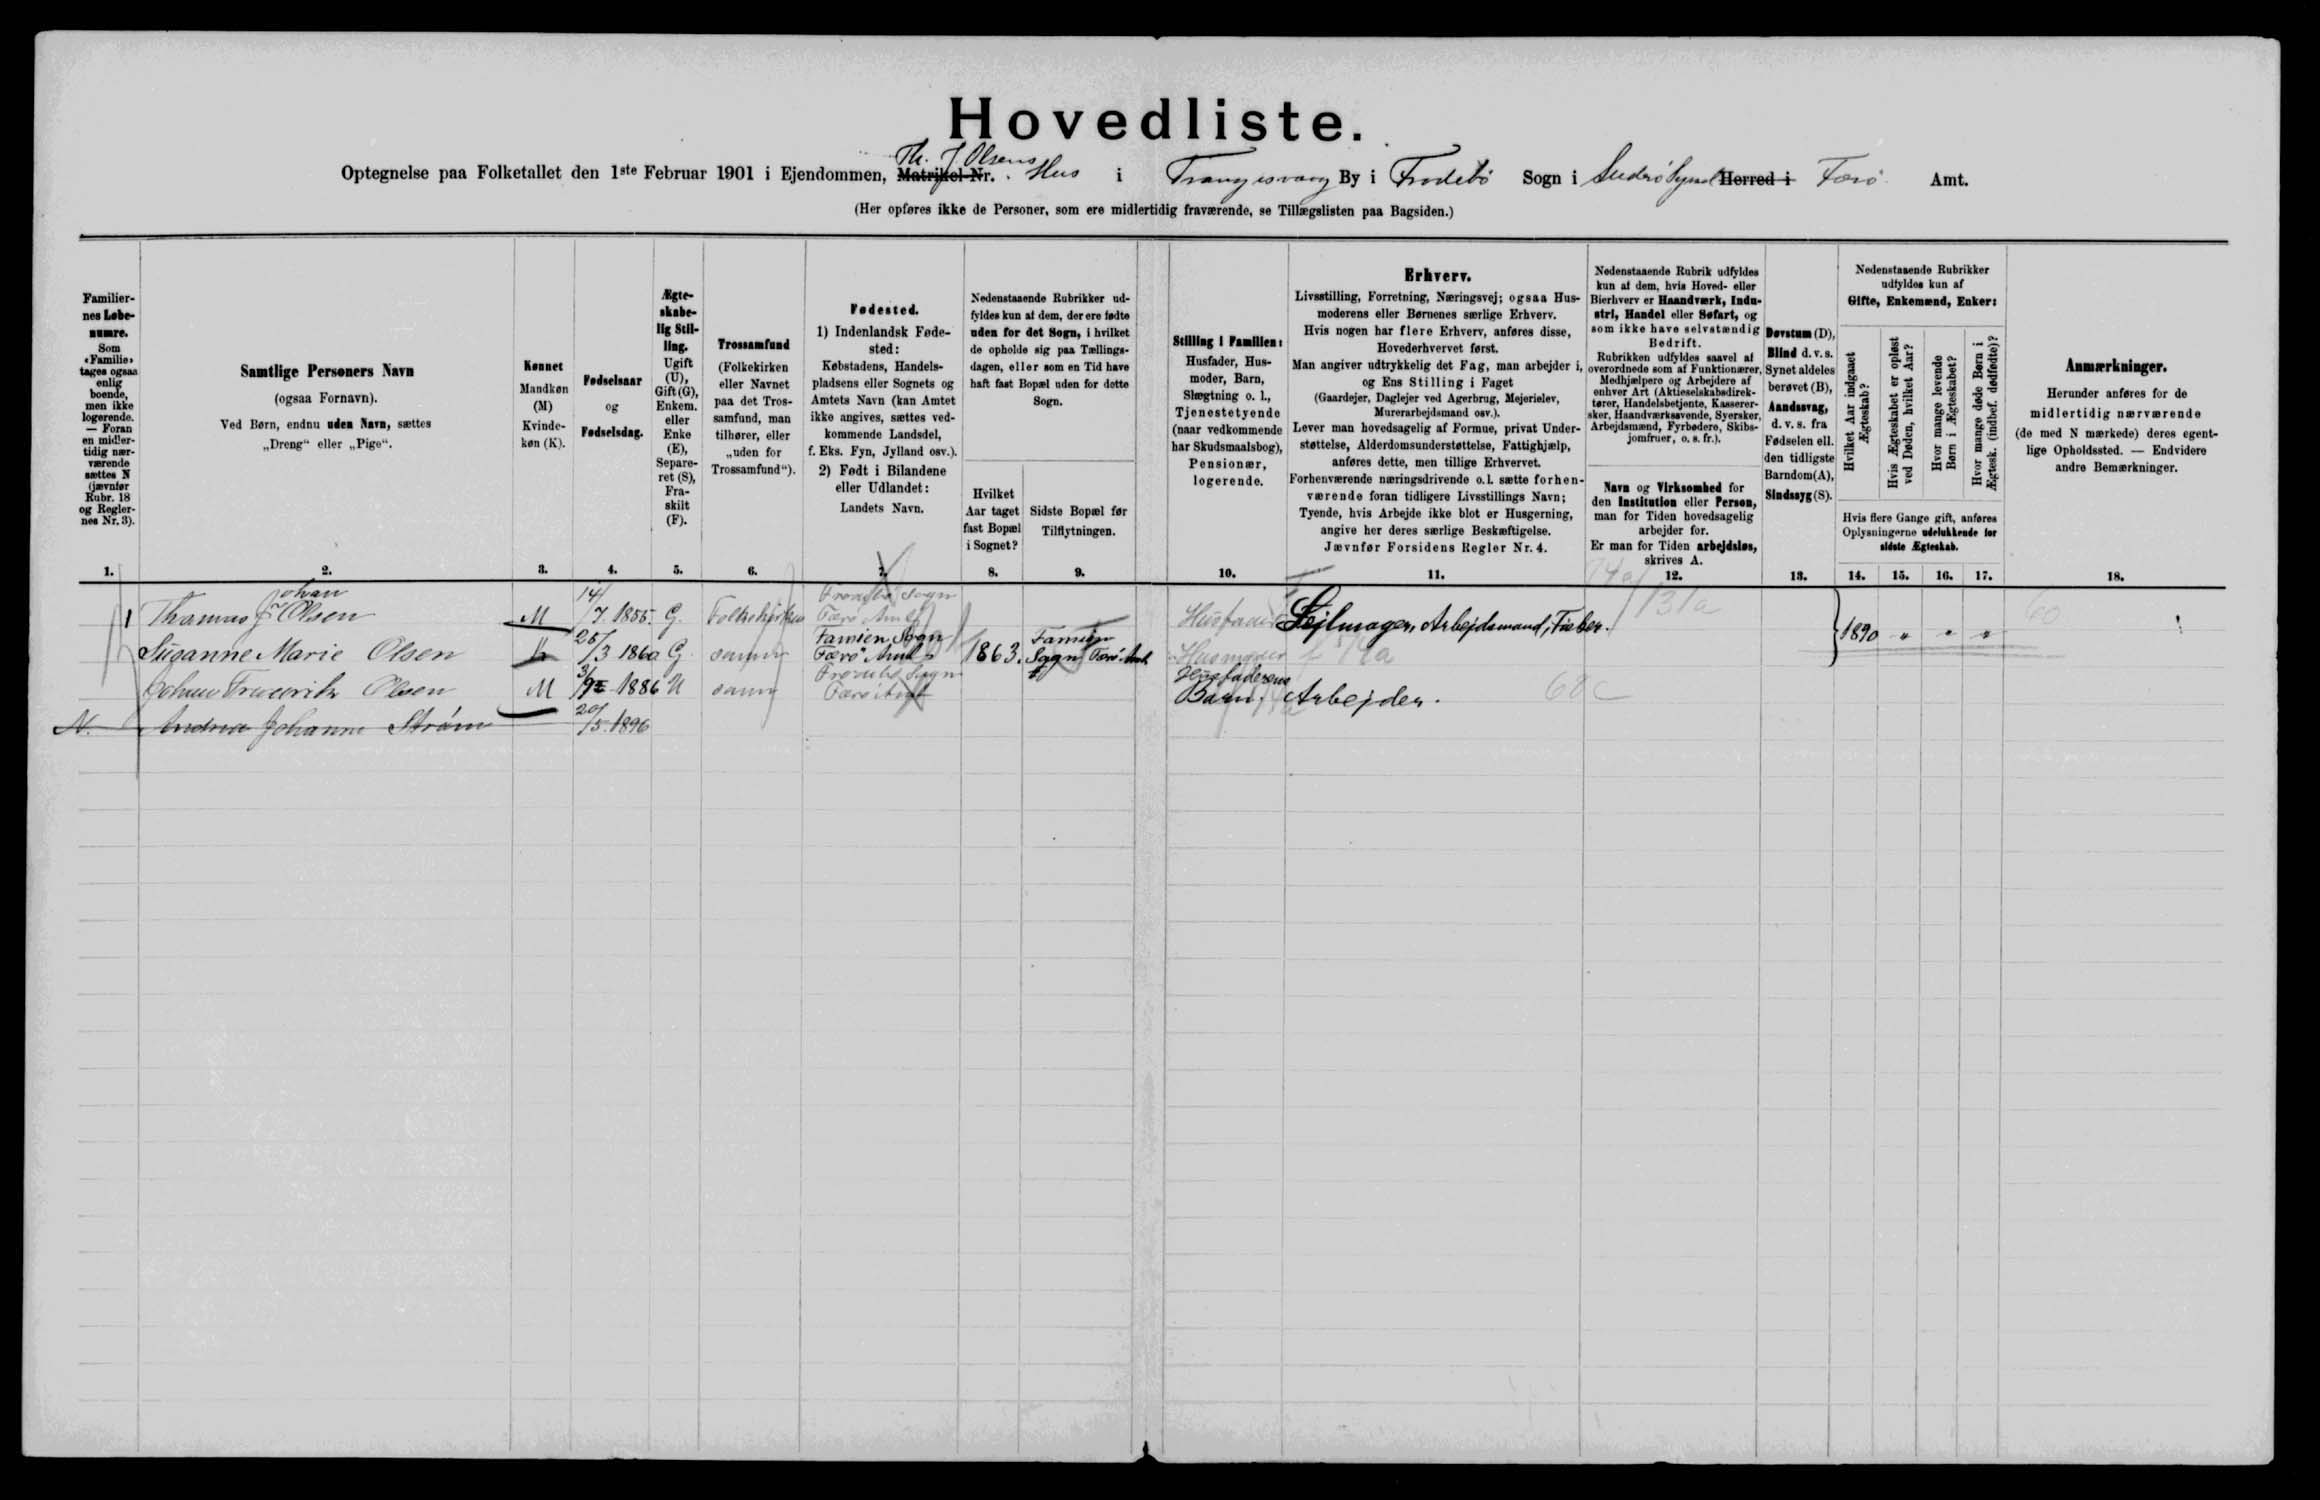 Hovedliste.
Optegnelse paa Folketallet den 1ste Februar 1901 i Ejendommen, Matrikel-Nr. Th. J. Olsens Hus i Trangisvaag By i Frodebø Sogn i Suderø Syssel Herred i Færø Amt.
(Her opføres ikke de Personer, som ere midlertidig fraværende, se Tillægslisten paa Bagsiden.)
Familiernes Løbenumre.
Som «Familie» tages ogsaa enlig boende, men ikke logerende. — Foran en midlertidig nærværende sættes N (jævnfør Rubr. 18 og Reglernes Nr. 3).
1.
Samtlige Personers Navn
(ogsaa Fornavn).
Ved Børn, endnu uden Navn, sættes
„Dreng“ eller „Pige“.
2.
Kønnet
Mandkøn (M)
Kvindekøn (K).
3.
Fødselsaar
og
Fødselsdag.
4.
Ægteskabelig Stilling.
Ugift (U), Gift (G), Enkem. eller Enke (E), Separeret (S), Fraskilt (F).
5.
Trossamfund
(Folkekirken eller Navnet paa det Trossamfund, man tilhører, eller „uden for Trossamfund“).
6.
Fødested.
1) Indenlandsk Fødested:
Købstadens, Handelspladsens eller Sognets og Amtets Navn (kan Amtet ikke angives, sættes vedkommende Landsdel, f. Eks. Fyn, Jylland osv.).
2) Født i Bilandene eller Udlandet:
Landets Navn.
7.
Nedenstaaende Rubrikker udfyldes kun af dem, der ere fødte uden for det Sogn, i hvilket de opholde sig paa Tællingsdagen, eller som en Tid have haft fast Bopæl uden for dette Sogn.
Hvilket Aar taget fast Bopæl i Sognet?
8.
Sidste Bopæl før Tilflytningen.
9.
Stilling i Familien:
Husfader, Husmoder, Barn, Slægtning o. l., Tjenestetyende (naar vedkommende har Skudsmaalsbog), Pensionær, logerende.
10.
Erhverv.
Livsstilling, Forretning, Næringsvej; ogsaa Husmoderens eller Børnenes særlige Erhverv.
Hvis nogen har flere Erhverv, anføres disse, Hovederhvervet først.
Man angiver udtrykkelig det Fag, man arbejder i, og Ens Stilling i Faget
(Gaardejer, Daglejer ved Agerbrug, Mejerielev, Murerarbejdsmand osv.).
Lever man hovedsagelig af Formue, privat Understøttelse, Alderdomsunderstøttelse, Fattighjælp, anføres dette, men tillige Erhvervet.
Forhenværende næringsdrivende o. l. sætte forhenværende foran tidligere Livsstillings Navn; Tyende, hvis Arbejde ikke blot er Husgerning, angive her deres særlige Beskæftigelse.
Jævnfør Forsidens Regler Nr. 4.
11.
Nedenstaaende Rubrik udfyldes kun af dem, hvis Hoved- eller Bierhverv er Haandværk, Industri, Handel eller Søfart, og som ikke have selvstændig Bedrift.
Rubrikken udfyldes saavel af overordnede som af Funktionærer, Medhjælpere og Arbejdere af enhver Art (Aktieselskabsdirektører, Handelsbetjente, Kasserersker, Haandværkssvende, Syersker, Arbejdsmænd, Fyrbødere, Skibsjomfruer, o. s. fr.).
Navn og Virksomhed for den Institution eller Person, man for Tiden hovedsagelig arbejder for.
Er man for Tiden arbejdsløs, skrives A.
12.
Døvstum (D), Blind d. v. s. Synet aldeles berøvet (B), Aandssvag, d. v. s. fra Fødselen ell. den tidligste Barndom (A), Sindssyg (S).
13.
Nedenstaaende Rubrikker udfyldes kun af
Gifte, Enkemænd, Enker:
Hvilket Aar indgaaet Ægteskab?
Hvis Ægteskabet er opløst ved Døden, hvilket Aar?
Hvor mange levende Børn i Ægteskabet?
Hvor mange døde Børn i Ægtesk. (indbef. dødfødte)?
Hvis flere Gange gift, anføres Oplysningerne udelukkende for sidste Ægteskab.
14. 15. 16. 17.
Anmærkninger.
Herunder anføres for de midlertidig nærværende (de med N mærkede) deres egentlige Opholdssted. — Endvidere andre Bemærkninger.
18.
1 Thomas Johan Olsen M 14/7. 1855. G. Folkekirken Frodebø Sogn Færø Amt Husfader Sejlmager, Arbejdsmand, Fisker. 74a/131a 1890 " " " 60
Susanne Marie Olsen K 25/3 1860 G samme Famien Sogn Færø Amt 1863. Famien Sogn Færø Amt Husmoder
Johan Frederik Olsen M 3/9 1886 U samme Frodebø Sogn Færø Amt Husfaderens Barn. Arbejder. 68c
N. Andrea Johanne Strøm 20/5. 1896